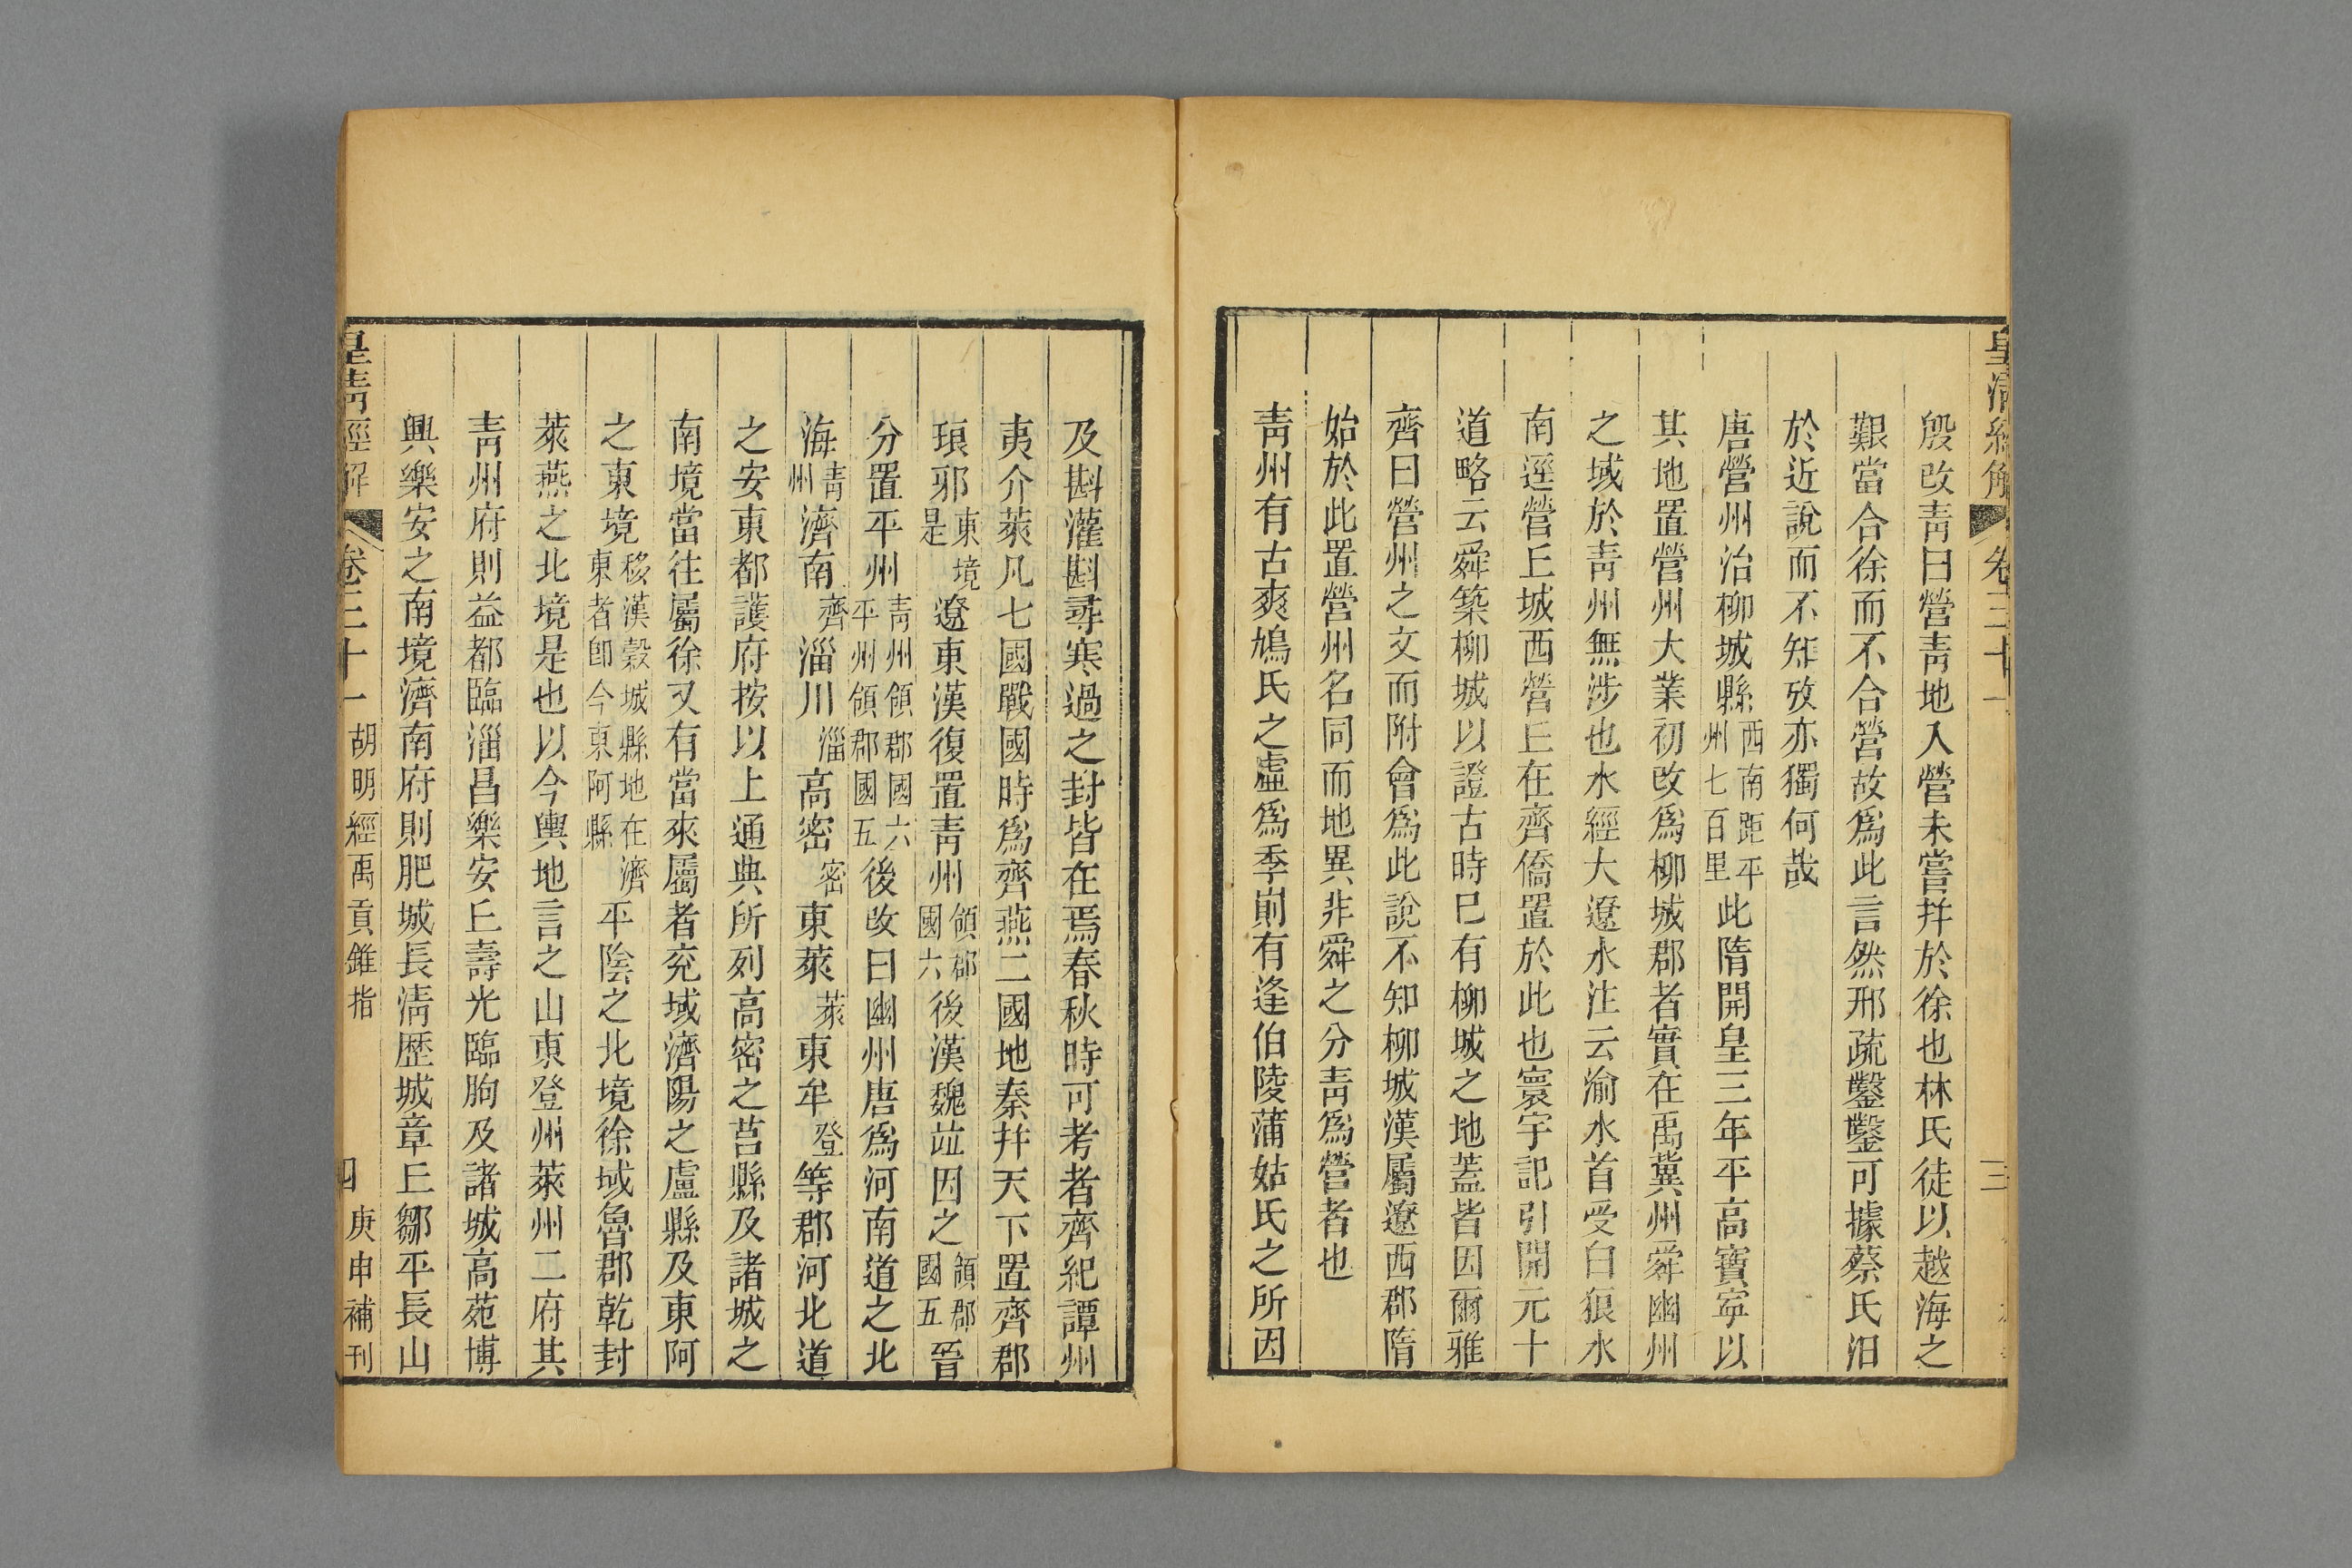 皇清經解 卷三十一 三
殷改靑曰營靑地入營未嘗幷於徐也林氏徒以越海之
艱當合徐而不合營故爲此言然邢疏鑿鑿可據蔡氏汨
於近說而不知攷亦獨何哉
唐營州治柳城縣西南距平州七百里此隋開皇三年平高寶寜以
其地置營州大業初改爲柳城郡者實在禹冀州舜幽州
之域於靑州無涉也水經大遼水注云渝水首受白狼水
南逕營丘城西營丘在齊僑置於此也寰宇記引開元十
道略云舜築柳城以證古時巳有柳城之地蓋皆因爾雅
齊曰營州之文而附會爲此說不知柳城漢屬遼西郡隋
始於此置營州名同而地異非舜之分靑爲營者也
靑州有古爽鳩氏之虛爲季崱有逢伯陵蒲姑氏之所因
及斟灌斟尋寒過之封皆在焉春秋時可考者齊紀譚州
夷介萊凡七國戰國時爲齊燕二國地秦幷天下置齊郡
琅邪東境是遼東漢復置靑州領郡國六後漢魏竝因之領郡國五晉
分置平州靑州領郡國六平州領郡國五後改曰幽州唐爲河南道之北
海靑州濟南齊淄川淄高密密東萊萊東牟登等郡河北道
之安東都護府按以上通典所列高密之莒縣及諸城之
南境當往屬徐又有當來屬者兖域濟陽之盧縣及東阿
之東境移漢穀城縣地在濟東者卽今東阿縣平陰之北境徐域魯郡乾封
萊燕之北境是也以今輿地言之山東登州萊州二府其
靑州府則益都臨淄昌樂安丘壽光臨朐及諸城高苑博
興樂安之南境濟南府則肥城長淸歷城章丘鄒平長山
皇淸經解 卷三十一 胡明經禹貢錐指 四 庚申補刊